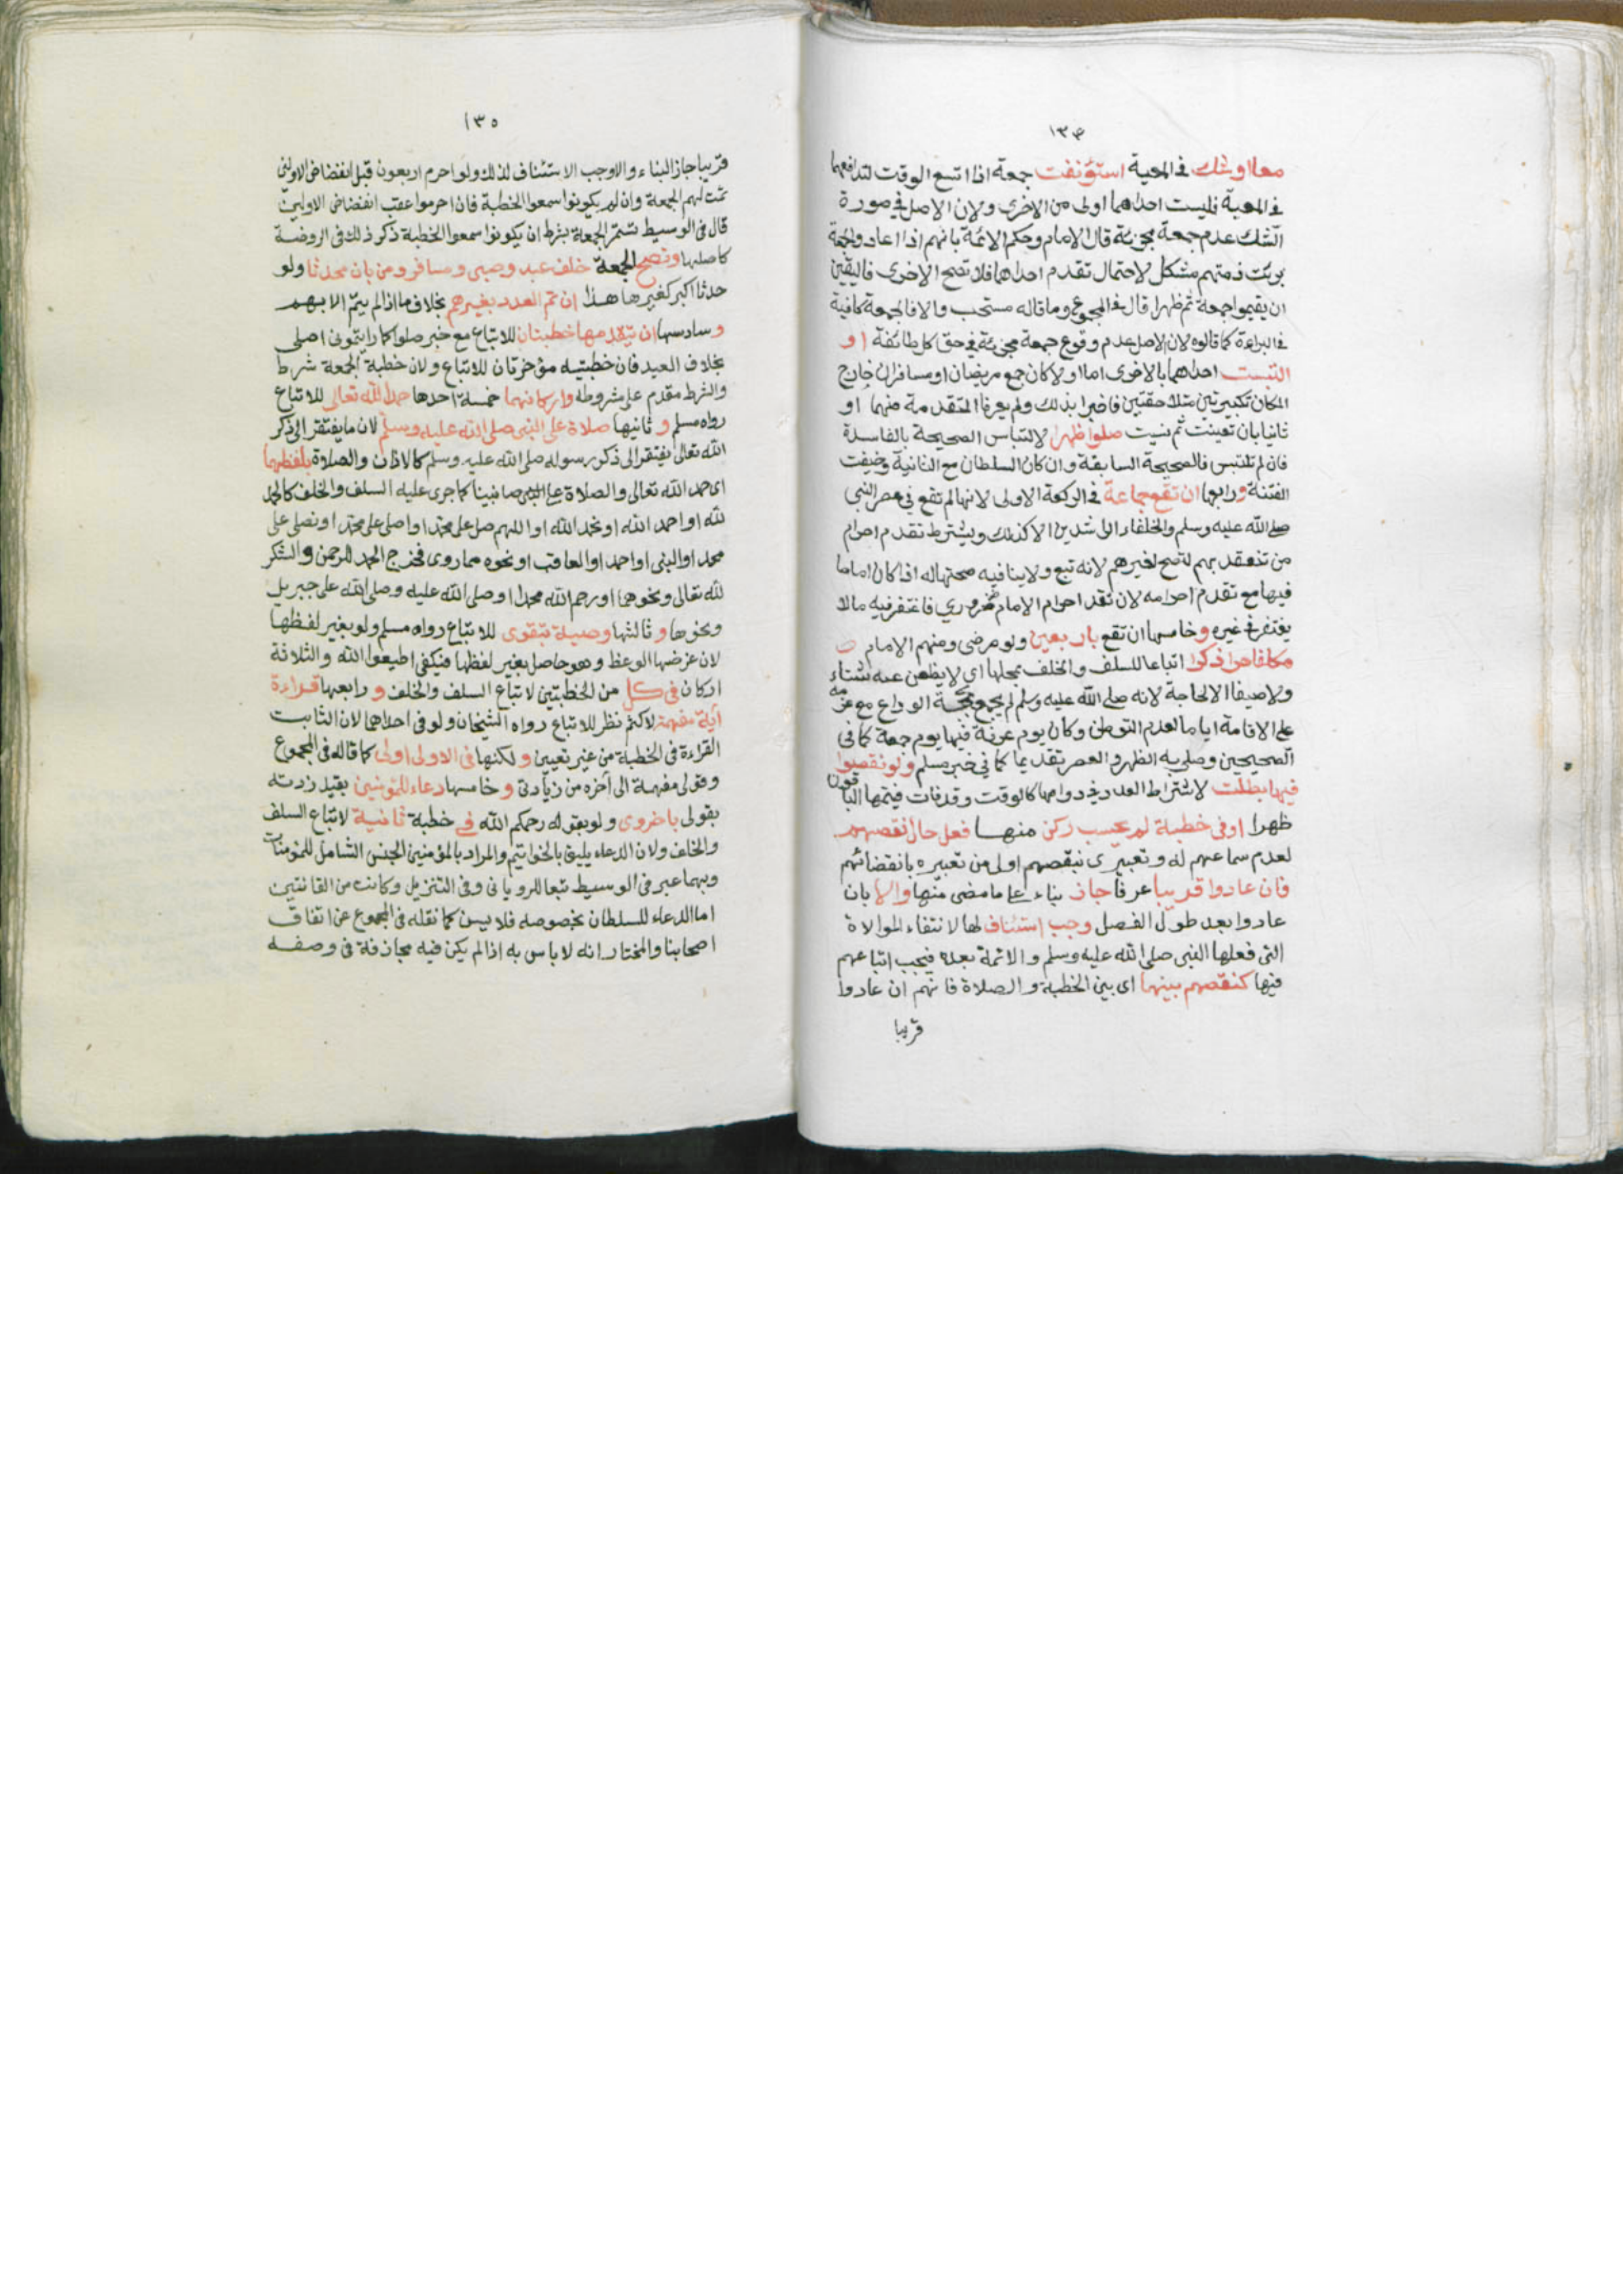 ١٣٤
معا او شك في المعية استؤنفت جمعة اذا اتسع الوقت لتدافعهما
في المعية فليست احداهما اولى من الاخرى ولان الاصل في صورة
الشك عدم جمعة مجزئة قال الامام وحكم الائمة بانهم اذا اعادوا الجمعة
برئت ذمتهم مشكل لاحتمال تقدم احداهما فلا تصح الاخرى فاليقين
ان يقيموا جمعة ثم ظهرا قال في المجموع وما قاله مستحب والا فالجمعة كافية
في البراءة كما قالوه لان الاصل عدم وقوع جمعة مجزئة في حق كل طائفة او
التبست احداهما بالاخرى اما اولا كان سمع مريضان او مسافران خارج
المكان تكبيرتين متلاحقتين فاخبرا بذلك ولم يعرفا المتقدمة منهما او
ثانيا بان تعينت ثم نسيت صلوا ظهرا لالتباس الصحيحة بالفاسدة
فان لم تلتبس فالصحيحة السابقة وان كان السلطان مع الثانية وخيفت
الفتنة ورابعها ان تقع جماعة في الركعة الاولى لانها لم تقع في عصر النبي
صلى الله عليه وسلم والخلفاء الراشدين الا كذلك ويشترط تقدم احرام
من تنعقد بهم لتصح لغيرهم لانه تبع ولا ينافيه صحتها له اذا كان اماما
فيها مع تقدم احرامه لان تقدم احرام الامام ضروري فاغتفر فيه مالا
يغتفر في غيره وخامسها ان تقع باربعين ولو مرضى ومنهم الامام
مكلفا حرا ذكرا اتباعا للسلف والخلف بمحلها اي لا يظعن عنه شتاء
ولا صيفا الا لحاجة لانه صلى الله عليه وسلم لم يجمع بحجة الوداع مع عزمه
على الاقامة اياما لعدم التوطن وكان يوم عرفة فيها يوم جمعة كما في
الصحيحين وصلى به الظهر والعصر تقديما كما في خبر مسلم ولو نقصوا
فيها بطلت لاشتراط العدد في دوامها كالوقت وقد فات فيتمها الباقون
ظهرا او في خطبة لم يحسب ركن منها فعل حال نقصهم
لعدم سماعهم له وتعبيري بنقصهم اولى من تعبيره بانفضاضهم
فان عادوا قريبا عرفا جاز بناء على ما مضى منها والا بان
عادوا بعد طول الفصل وجب استئناف لها لانتفاء الموالاة
التي فعلها النبي صلى الله عليه وسلم والائمة بعده فيجب اتباعهم
فيها كنقصهم بينهما اي بين الخطبة والصلاة فانهم ان عادوا
قريبا
١٣٥
قريبا جاز البناء والا وجب الاستئناف لذلك ولو احرم اربعون قبل انفضاض الاولين
تمت لهم الجمعة وان لم يكونوا سمعوا الخطبة فان احرموا عقب انفضاض الاولين
قال في الوسيط تستمر الجمعة بشرط ان يكونوا سمعوا الخطبة ذكر ذلك في الروضة
كاصلها وتصح الجمعة خلف عبد وصبي ومسافر ومن بان محدثا ولو
حدثا اكبر كغيرها هذا ان تم العدد بغيرهم بخلاف ما اذا لم يتم الا بهم
وسادسها ان يتقدمها خطبتان للاتباع مع خبر صلوا كما رايتموني اصلي
بخلاف العيد فان خطبتيه مؤخرتان للاتباع ولان خطبة الجمعة شرط
والشرط مقدم على مشروطه واركانهما خمسة احدها حمد الله تعالى للاتباع
رواه مسلم و ثانيها صلاة على النبي صلى الله عليه وسلم لان ما يفتقر الى ذكر
الله تعالى يفتقر الى ذكر رسوله صلى الله عليه وسلم كالاذان والصلاة بلفظهما
اى حمد الله تعالى والصلاة على النبي صلى نبينا كما جرى عليه السلف والخلف كالحمد
لله او احمد الله او نحمد الله او اللهم صل على محمد او اصلي على محمد او نصلي على
محمد او النبي او احمد او العاقب او نحوه مما روى فخرج الحمد للرحمن والشكر
لله تعالى ونحوهما او رحم الله محمدا او صلى الله عليه وصلى الله على جبريل
ونحوها و ثالثها وصية بتقوى للاتباع رواه مسلم ولو بغير لفظها
لان غرضها الوعظ وهو حاصل بغير لفظها فيكفي اطيعوا الله والثلاثة
اركان في كل من الخطبتين لاتباع السلف والخلف و رابعها قراءة
آية مفهمة لا كثم نظر للاتباع رواه الشيخان ولو في احداهما لان الثابت
القراءة في الخطبة من غير تعيين و لكنها في الاولى اولى كما قاله في المجموع
وقولي مفهمة الى آخره من زيادتي و خامسها دعاء للمؤمنين بقيد زدته
بقولي باخروي ولو بقوله رحمكم الله في خطبة ثانية لاتباع السلف
والخلف ولان الدعاء يليق بالخواتيم والمراد بالمؤمنين الجنس الشامل للمؤمنات
وبهما عبر في الوسيط تبعا للروياني وفي التنزيل وكانت من القانتين
اما الدعاء للسلطان بخصوصه فلا يسن كما نقله في المجموع عن اتفاق
اصحابنا والمختار انه لا باس به اذا لم يكن فيه مجازفة في وصفه